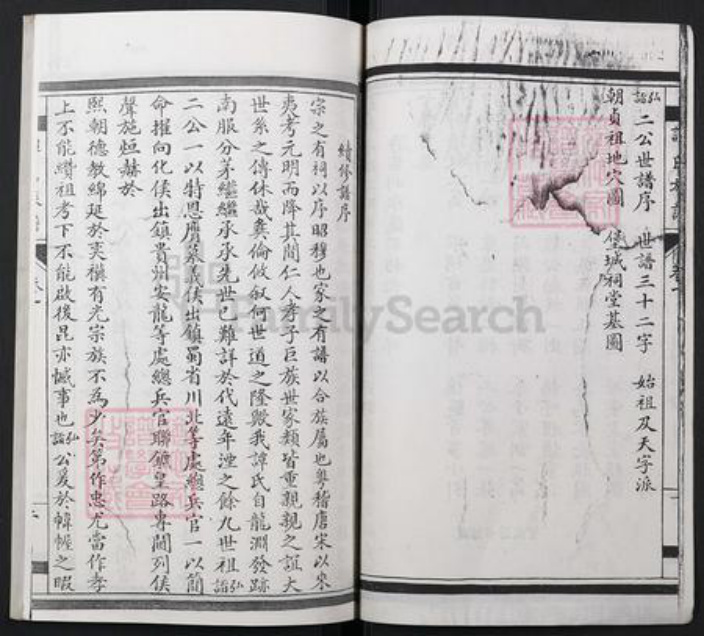 弘詣二公世譜序 世譜三十二字 始祖及天字派
朝貞祖地穴圖 堡城祠堂基圖
續修譜序
宗之有祠以序昭穆也家之有譜以合族屬也粵稽唐宋以來
夷考元明而降其間仁人孝子巨族世家類皆重親親之誼大
世系之傳休哉彝倫攸敘何世道之隆歟我譚氏自龍淵發跡
南服分茅繼繼承承先世已難詳於代遠年湮之餘九世祖弘詣
二公一以特恩膺慕義侯出鎮蜀省川北等處總兵官一以簡
命擢向化侯出鎮貴州安龍等處總兵官聯鑣皇路專閫列侯
聲施烜赫於
熙朝德教綿延於奕禩有光宗族不為少矣第作忠尤當作孝
上不能纘祖考下不能啟後昆亦憾事也弘詣公爰於幃幄之暇
FamilySearch